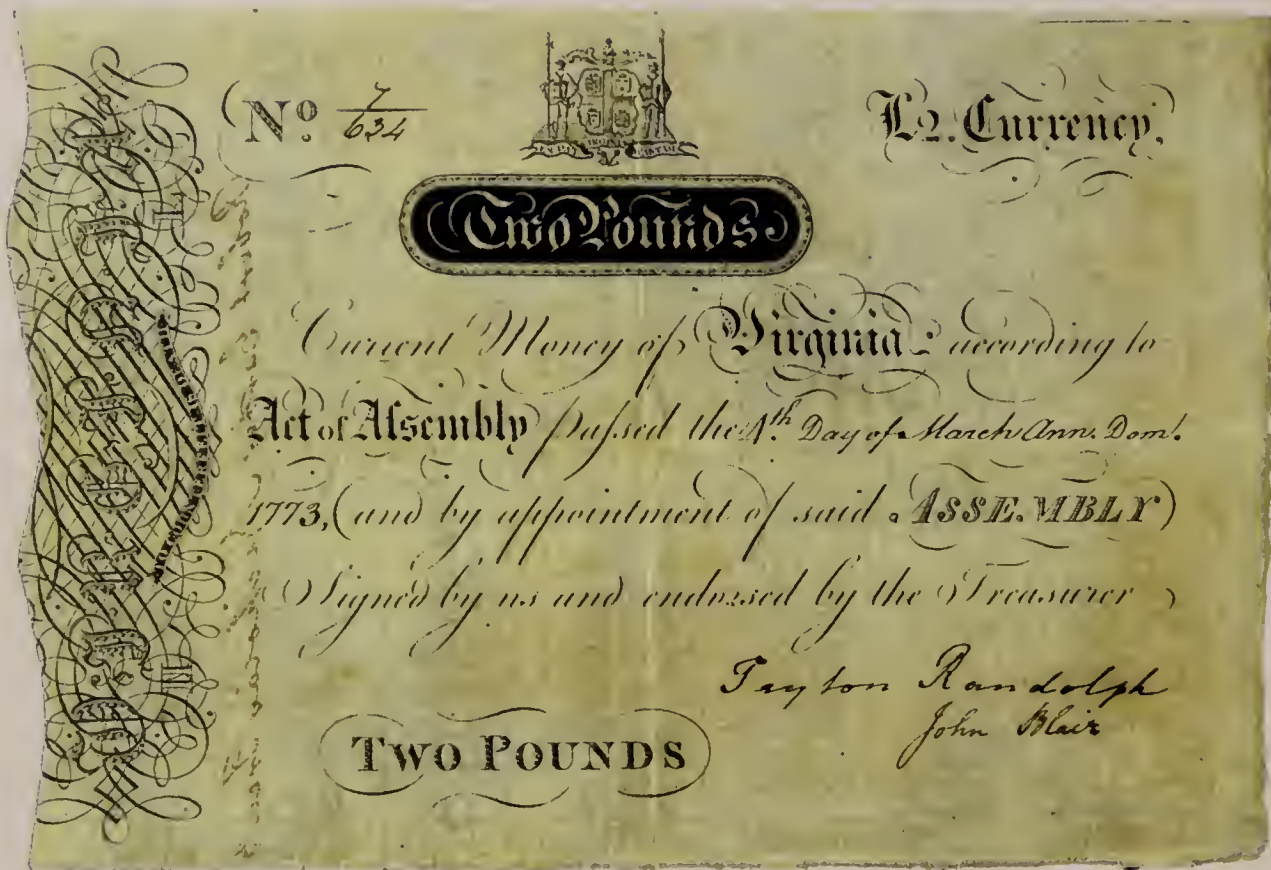 No. 7/634
£2. Currency.
Two Pounds
Current Money of Virginia according to
Act of Assembly passed the 4th. Day of March Ann. Dom!.
1773, (and by appointment of said ASSEMBLY)
Signed by us and endorsed by the Treasurer
Peyton Randolph
John Blair
TWO POUNDS